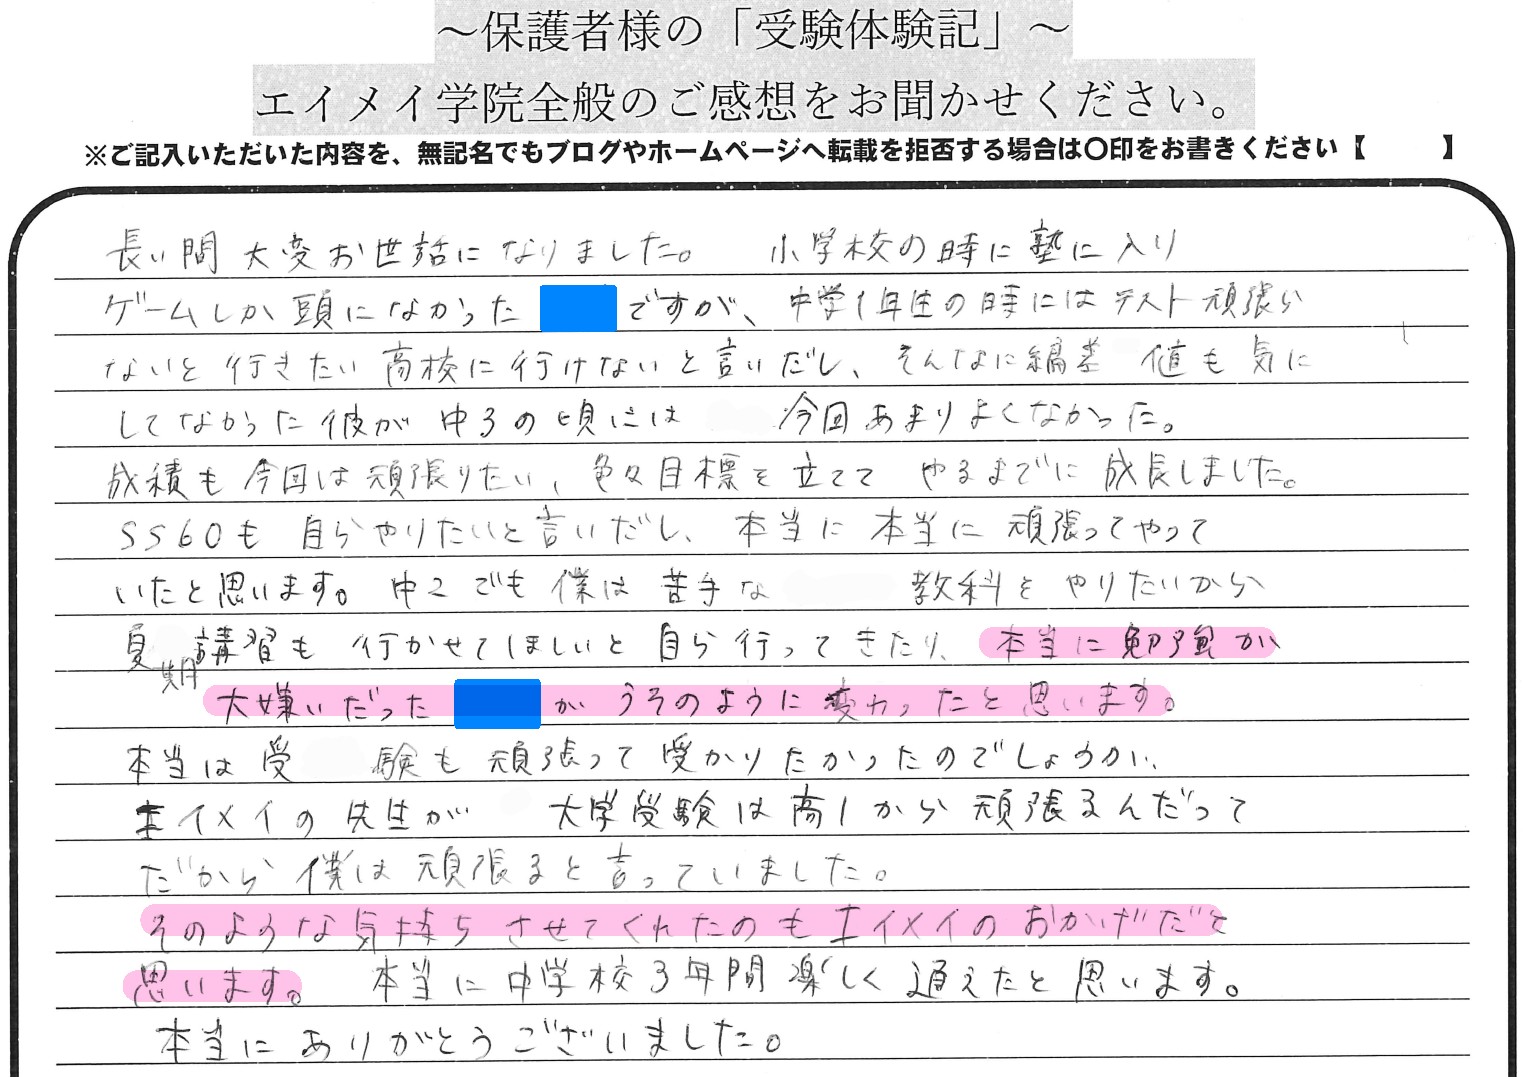 ～保護者様の「受験体験記」～
エイメイ学院全般のご感想をお聞かせください。
※ご記入いただいた内容を、無記名でもブログやホームページへ転載を拒否する場合は〇印をお書きください【　　　】
長い間 大変お世話になりました。 小学校の時に塾に入り
ゲームしか頭になかった ですが、中学1年生の時にはテスト頑張ら
ないと行きたい高校に行けないと言いだし、そんなに偏差 値も気に
してなかった彼が 中3の頃には 今回あまりよくなかった。
成績も今回は頑張りたい、色々目標を立てて やるまでに成長しました。
SS60も 自らやりたいと言いだし、本当に本当に 頑張ってやって
いたと思います。中2でも僕は苦手な 教科をやりたいから
夏期講習も 行かせてほしいと自ら行ってきたり、本当に勉強が
大嫌いだった が うそのように変わったと思います。
本当は受 験も頑張って受かりたかったのでしょうが、
エイメイの先生が 大学受験は高1から頑張るんだって
だから僕は頑張ると言っていました。
そのような気持ちさせてくれたのもエイメイのおかげだと
思います。 本当に中学校3年間楽しく通えたと思います。
本当にありがとうございました。